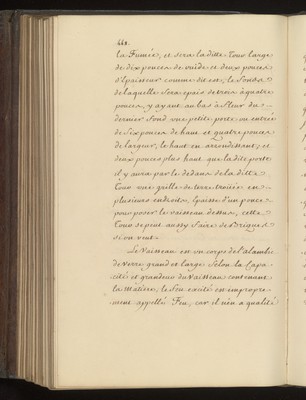 la Fumée, et sera la ditte Tour large
de dix pouces de vuide et deux pouces
d'Epaisseur comme dit est, le Fonds
de laquelle sera epais de trois à quatre
pouces, y ayant au bas à fleur du
dernier fond une petite porte ou entrée
de six pouces de haut et quatre pouces
de largeur, le haut en arrondissant, et
deux pouces plus haut que la dite porte
il y aura par le dedans de la ditte
Tour une grille de terre trouée en
plusieurs endroits, Epaisse d'un pouce
pour poser le vaisseau dessus, cette
Tour se peut aussy faire de Briques
si on veut.
Le Vaisseau est un corps de l'alambic
de verre grand et large selon la Capa-
cité et grandeur du Vaisseau contenant
la Matiere, le feu excité est impropre-
ment appellé Feu, car il n'en a qualité